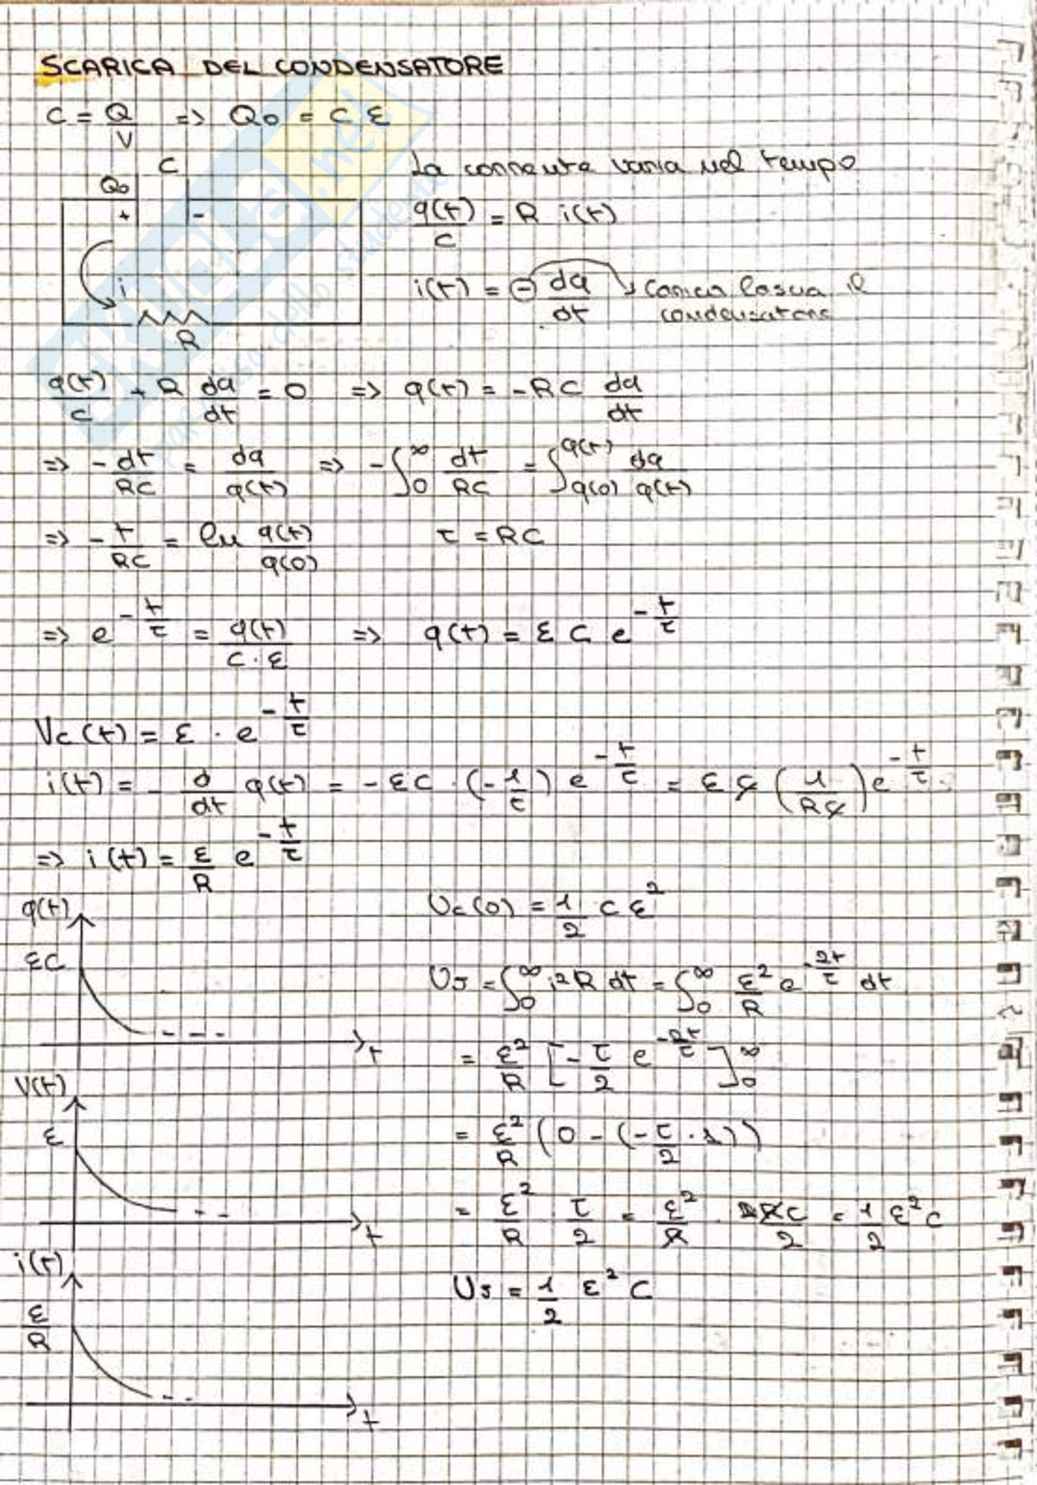 SCARICA DEL CONDENSATORE
C = Q/V => Q₀ = C ε
C
Q₀
+ -
i
R
La corrente varia nel tempo
q(t)/C = R i(t)
i(t) = - dq/dt → carica lascia il condensatore
q(t)/C + R dq/dt = 0 => q(t) = -RC dq/dt
=> -dt/RC = dq/q(t) => -∫₀^∞ dt/RC = ∫_q(0)^q(t) dq/q(t)
=> -t/RC = ln q(t)/q(0) τ = RC
=> e^(-t/τ) = q(t)/(C·ε) => q(t) = ε C e^(-t/τ)
Vc(t) = ε · e^(-t/τ)
i(t) = - d/dt q(t) = -εC · (-1/τ) e^(-t/τ) = εC (1/RC) e^(-t/τ)
=> i(t) = ε/R e^(-t/τ)
q(t)
εC
t
V(t)
ε
t
i(t)
ε/R
t
Uc(0) = 1/2 C ε²
UJ = ∫₀^∞ i²R dt = ∫₀^∞ ε²/R e^(-2t/τ) dt
= ε²/R [-τ/2 e^(-2t/τ)]₀^∞
= ε²/R (0 - (-τ/2 · 1))
= ε²/R · τ/2 = ε²/R · RC/2 = 1/2 ε² C
UJ = 1/2 ε² C